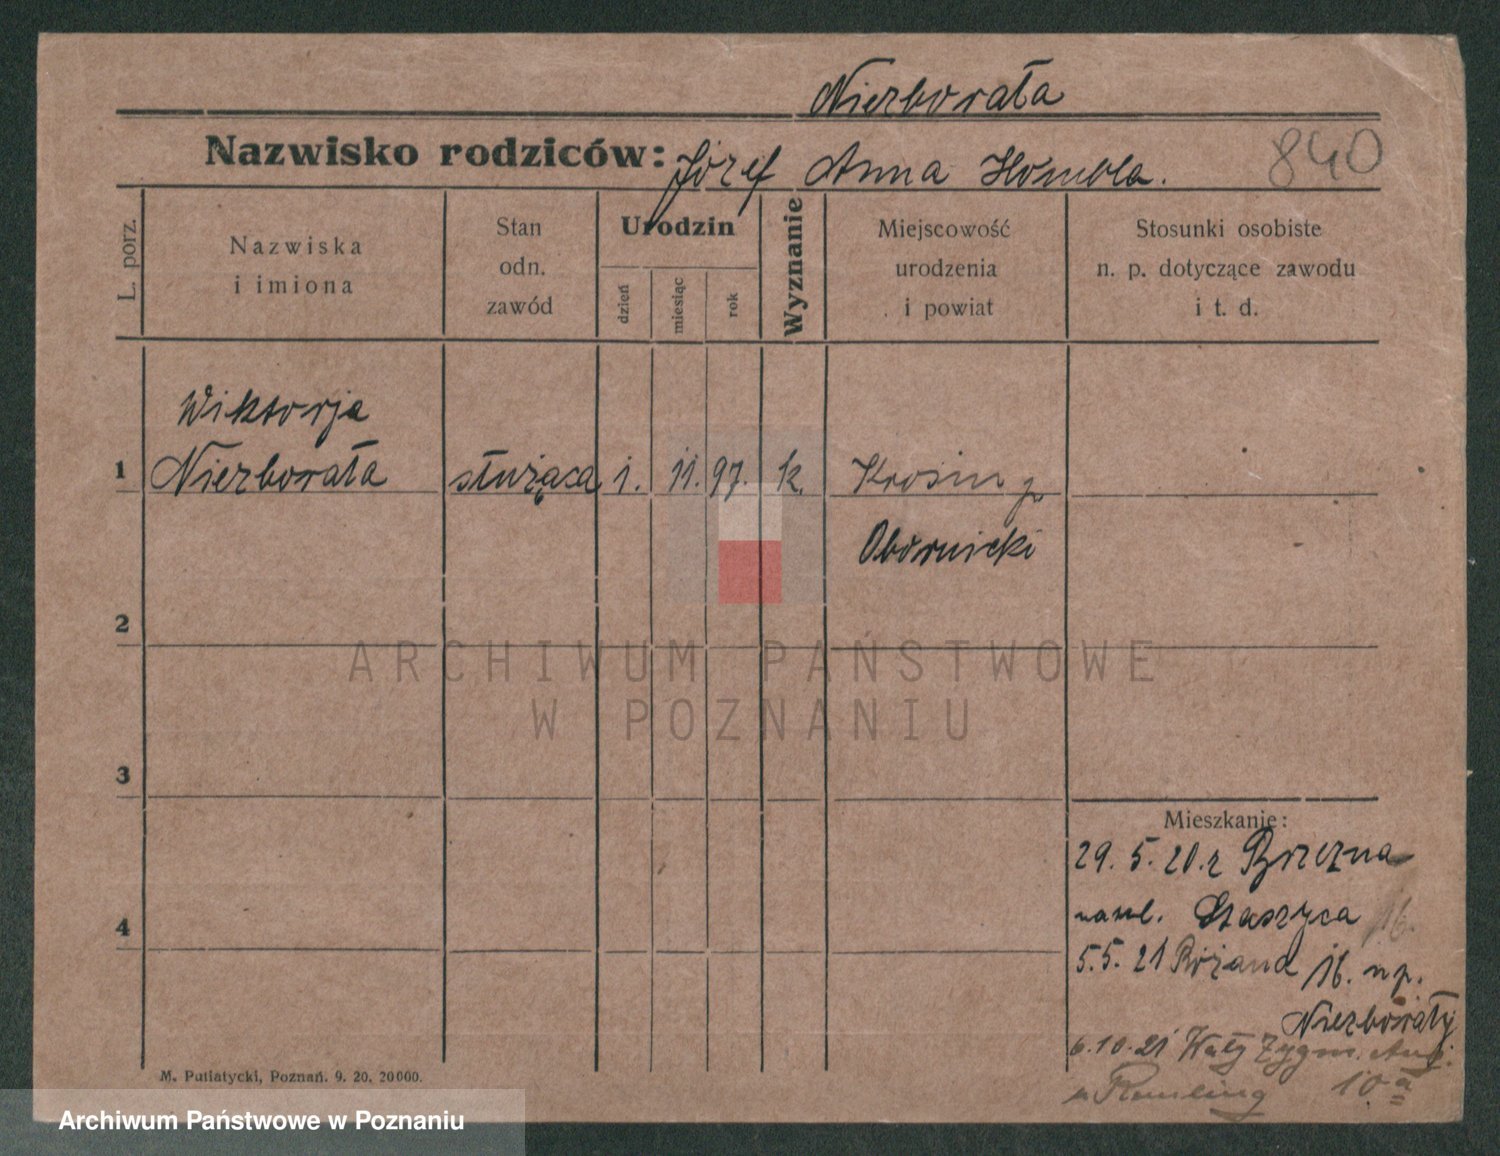 Nierborała
Nazwisko rodziców: Józef Anna Hombla. 840
L. porz.
Nazwiska
i imiona
Stan
odn.
zawód
Urodzin
dzień
miesiąc
rok
Wyznanie
Miejscowość
urodzenia
i powiat
Stosunki osobiste
n. p. dotyczące zawodu
i t. d.
Wiktorja
1 Nierborała służąca 1. 11. 97. k. Krosin p.
Obornicki
2
ARCHIWUM PAŃSTWOWE
W POZNANIU
3
Mieszkanie:
29. 5. 20. r
4
Staszyca 16.
5. 5. 21 Różana 16. u p.
Nierborały
6. 10. 21 Wały Zygm. Aug.
10 a
M. Putiatycki, Poznań. 9. 20. 20000.
Archiwum Państwowe w Poznaniu